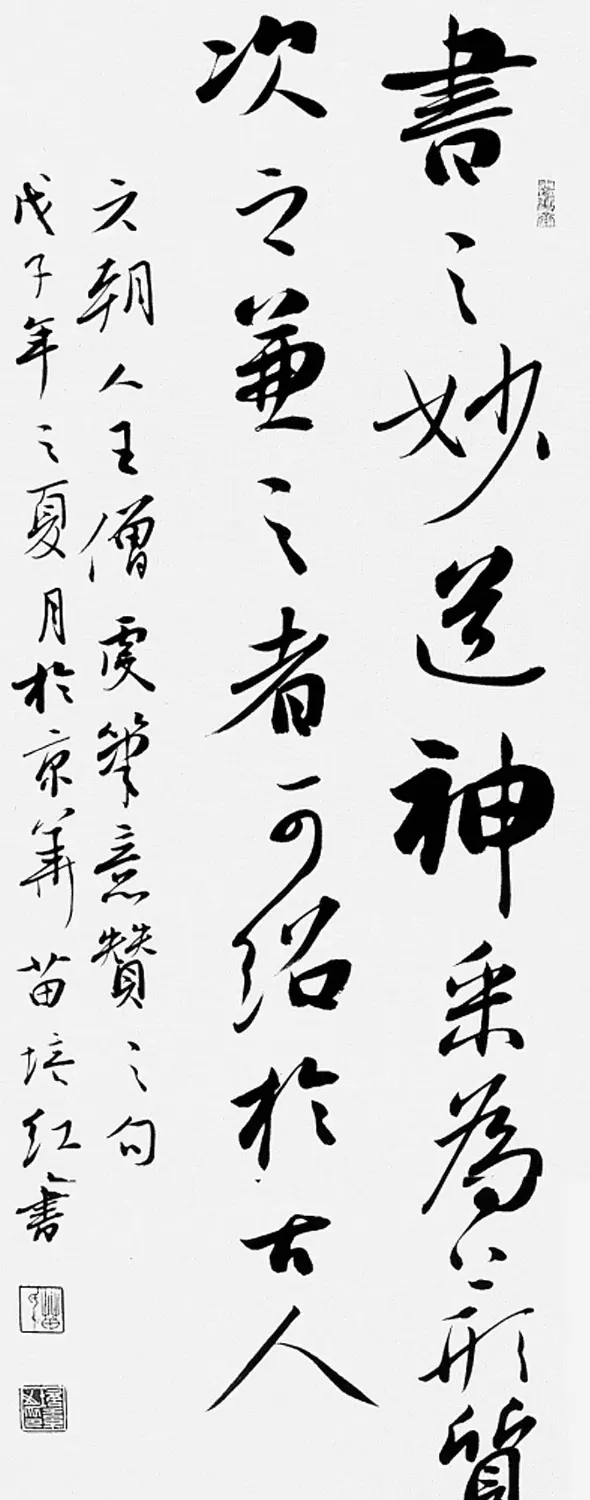 書之妙道神采為上形質
次之兼之者可紹於古人
六朝人王僧虔筆意贊之句
戊子年之夏月於京華苗培红書